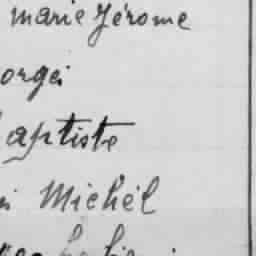 marie Jérome
orgei
aptiste
Michél